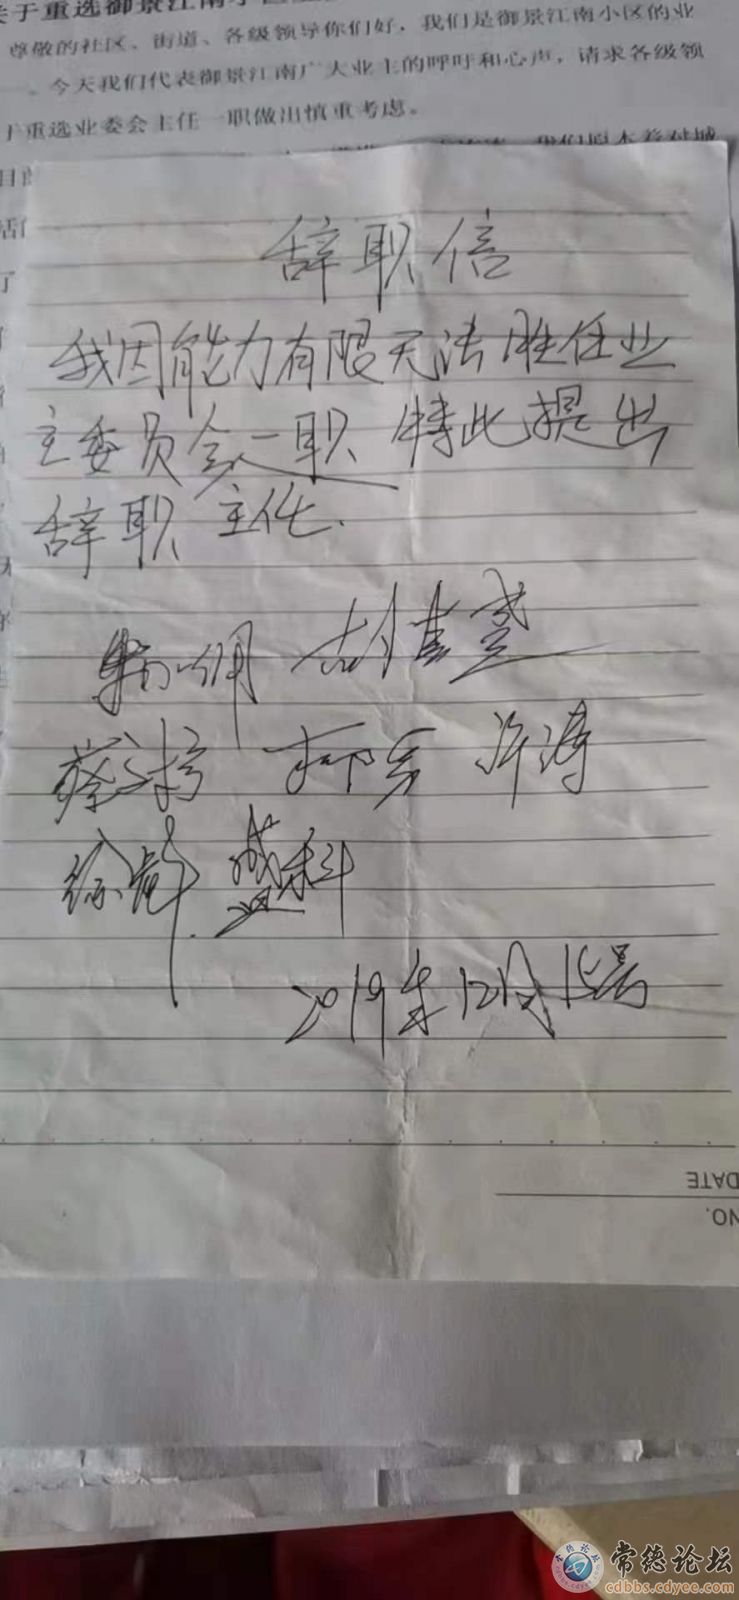 关于重选御景江南小区
尊敬的社区、街道、各级领导你们好，我们是御景江南小区的业
。今天我们代表御景江南广大业主的呼吁和心声，请求各级领
于重选业委会主任一职做出慎重考虑。
我们原本着对城
辞职信
我因能力有限无法胜任业
主委员会一职 特此提出
辞职 主任.
蔡 许涛
徐 盛科
2019年12月15号
DATE
NO.
常德论坛
cdbbs.cdyee.com